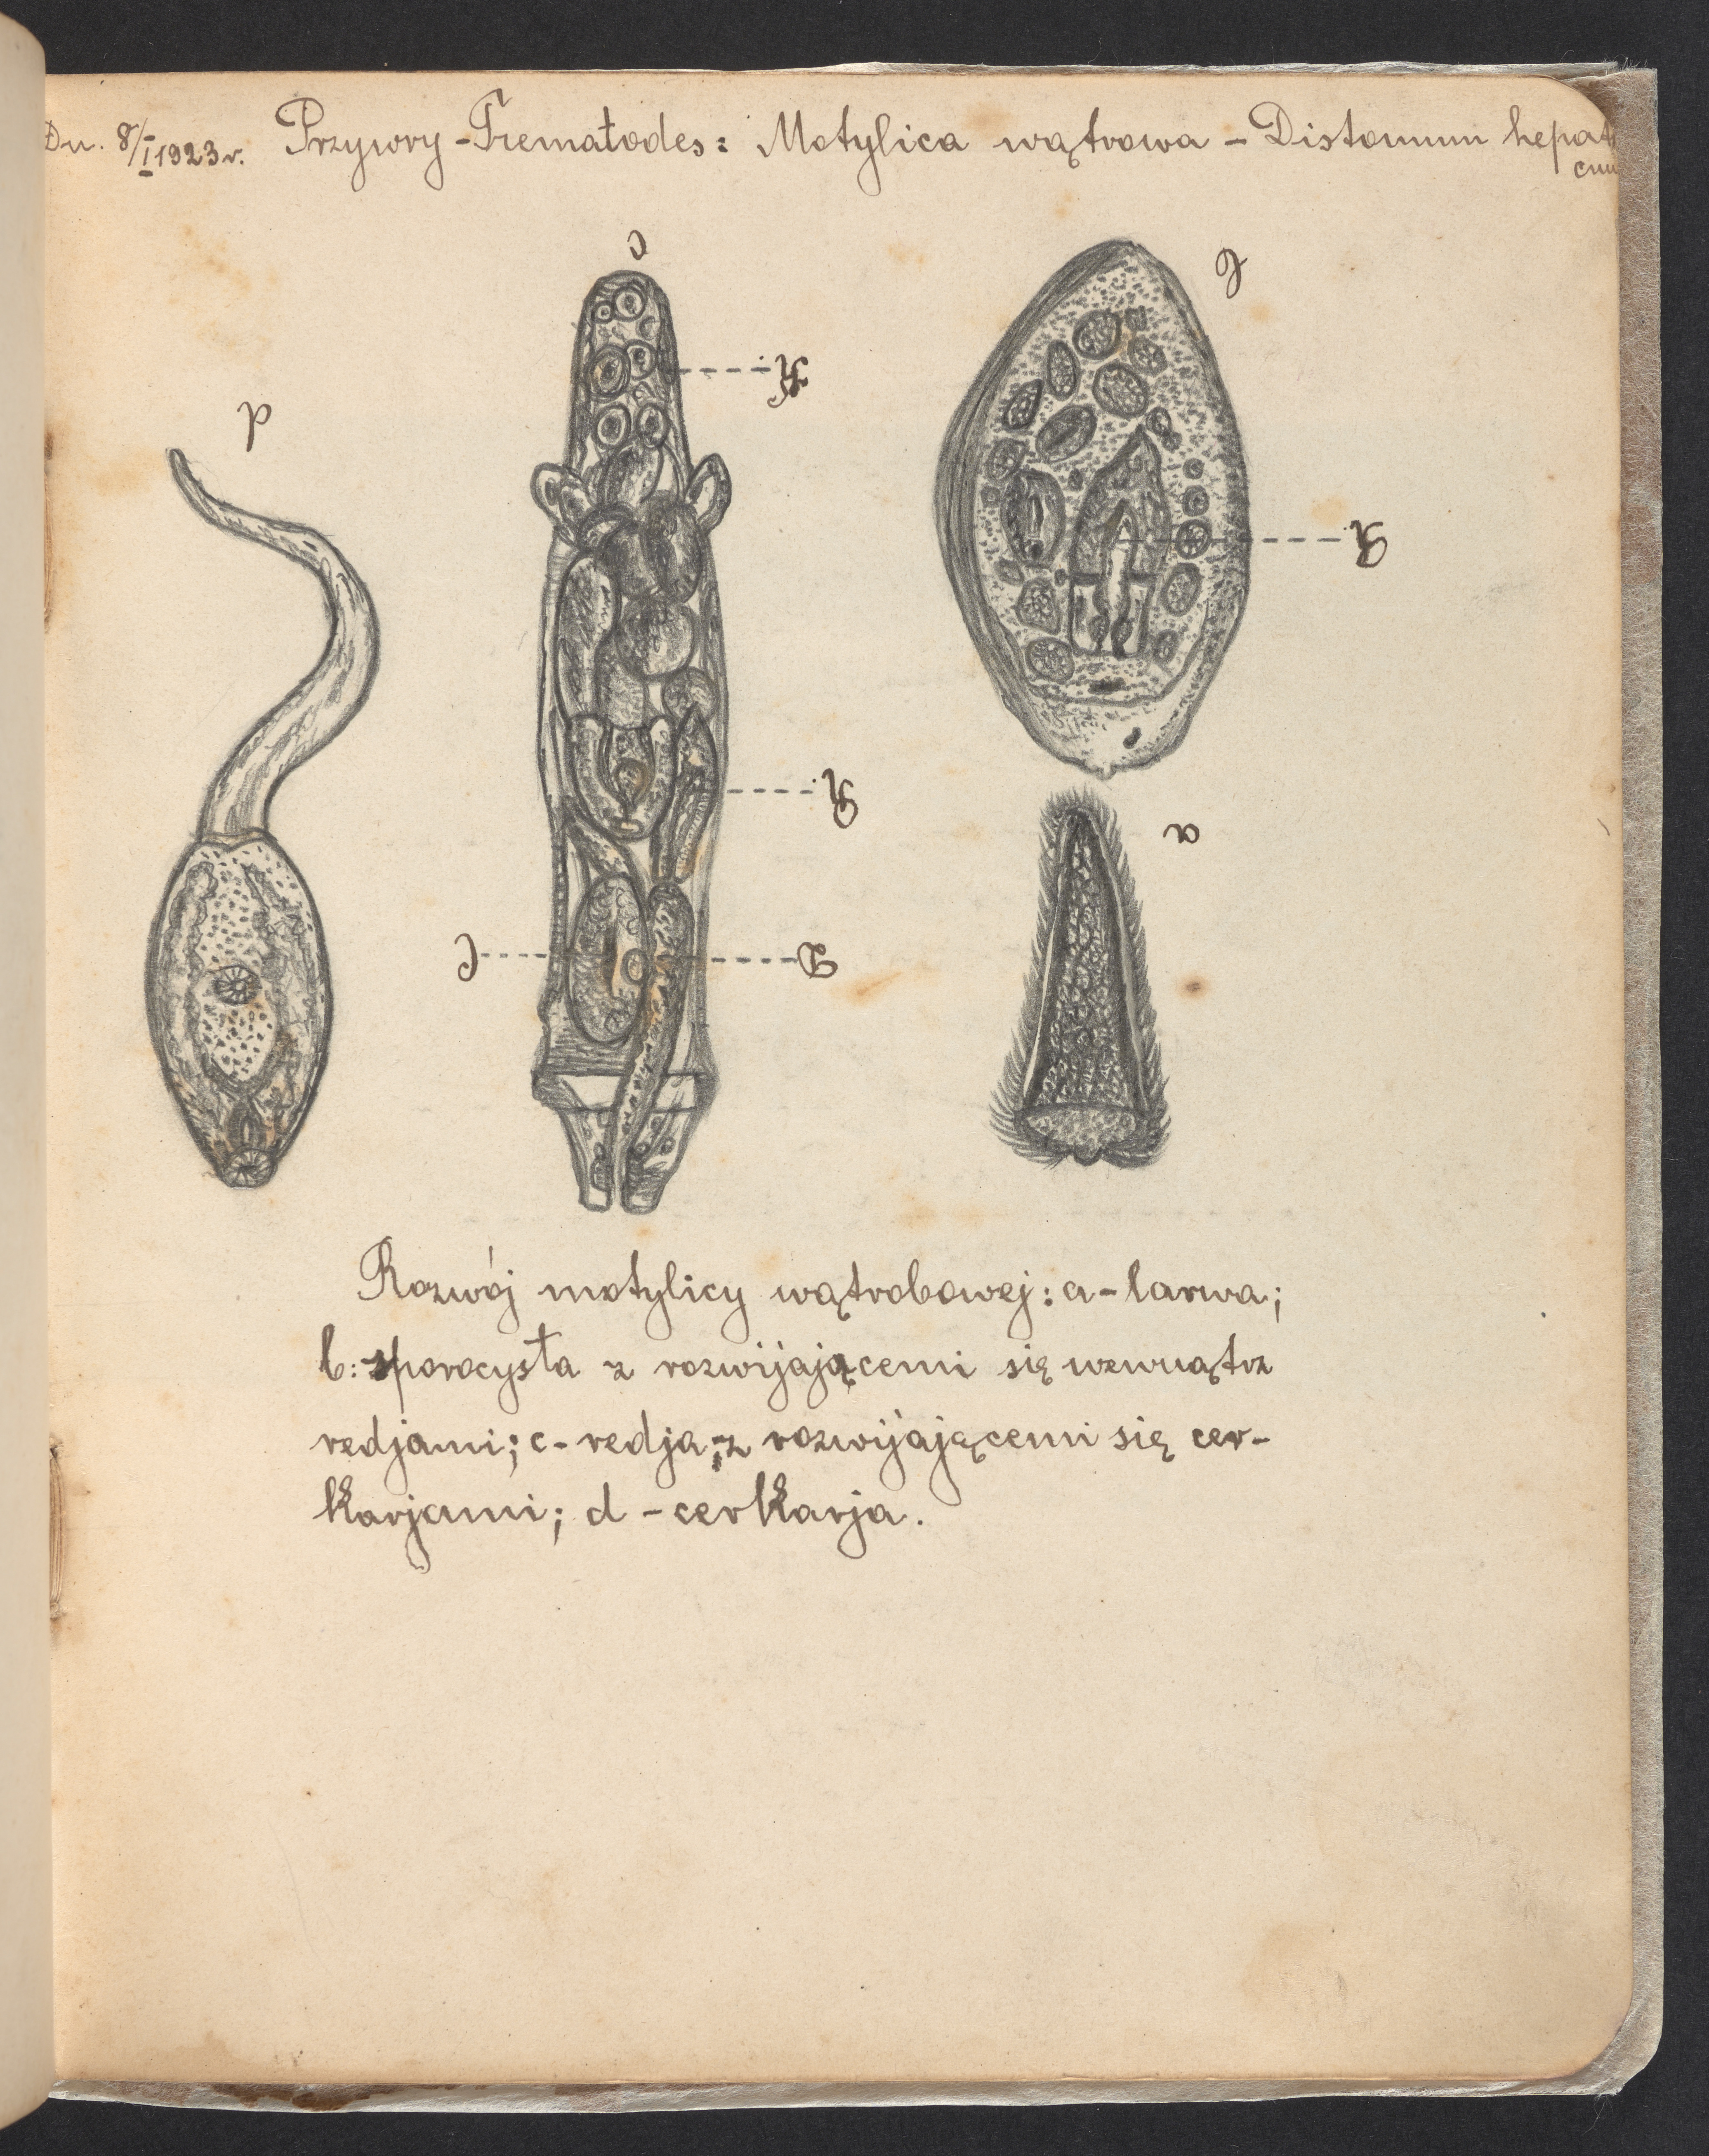 Dn. 8/I 1923 r. Przywry - Trematodes: Motylica wątrowa - Distomum hepati
cum
c
b
d
R
a
D
Rozwój motylicy wątrobowej: a - larwa;
b: sporocysta z rozwijającemi się wewnątrz
redjami; c - redja; z rozwijającemi się cer-
karjami; d - cerkarja.